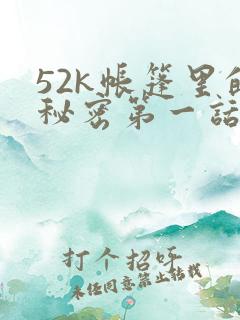 52k帐篷里的
秘密第一話
打个招呼
未经同意禁止转载